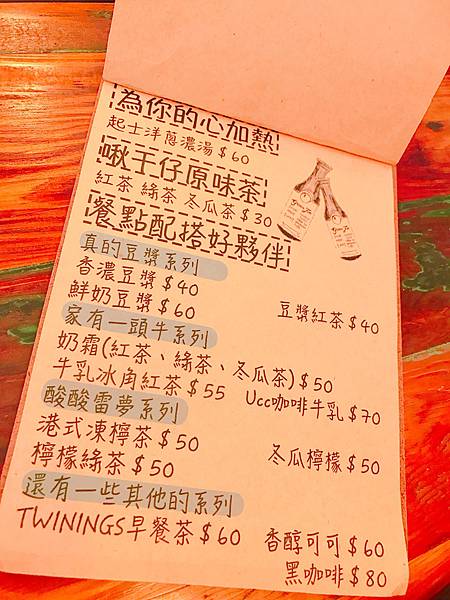 為你的心加熱
起士洋蔥濃湯$60
啾干仔原味茶
紅茶 綠茶 冬瓜茶$30
餐點配搭好夥伴
真的豆漿系列
香濃豆漿$40
豆漿紅茶$40
鮮奶豆漿$60
家有一頭牛系列
奶霜(紅茶、綠茶、冬瓜茶)$50
牛乳冰角紅茶$55
Ucc咖啡牛乳$70
酸酸雷夢系列
港式凍檸茶$50
冬瓜檸檬$50
檸檬綠茶$50
還有一些其他的系列
TWININGS早餐茶$60
香醇可可$60
黑咖啡$80